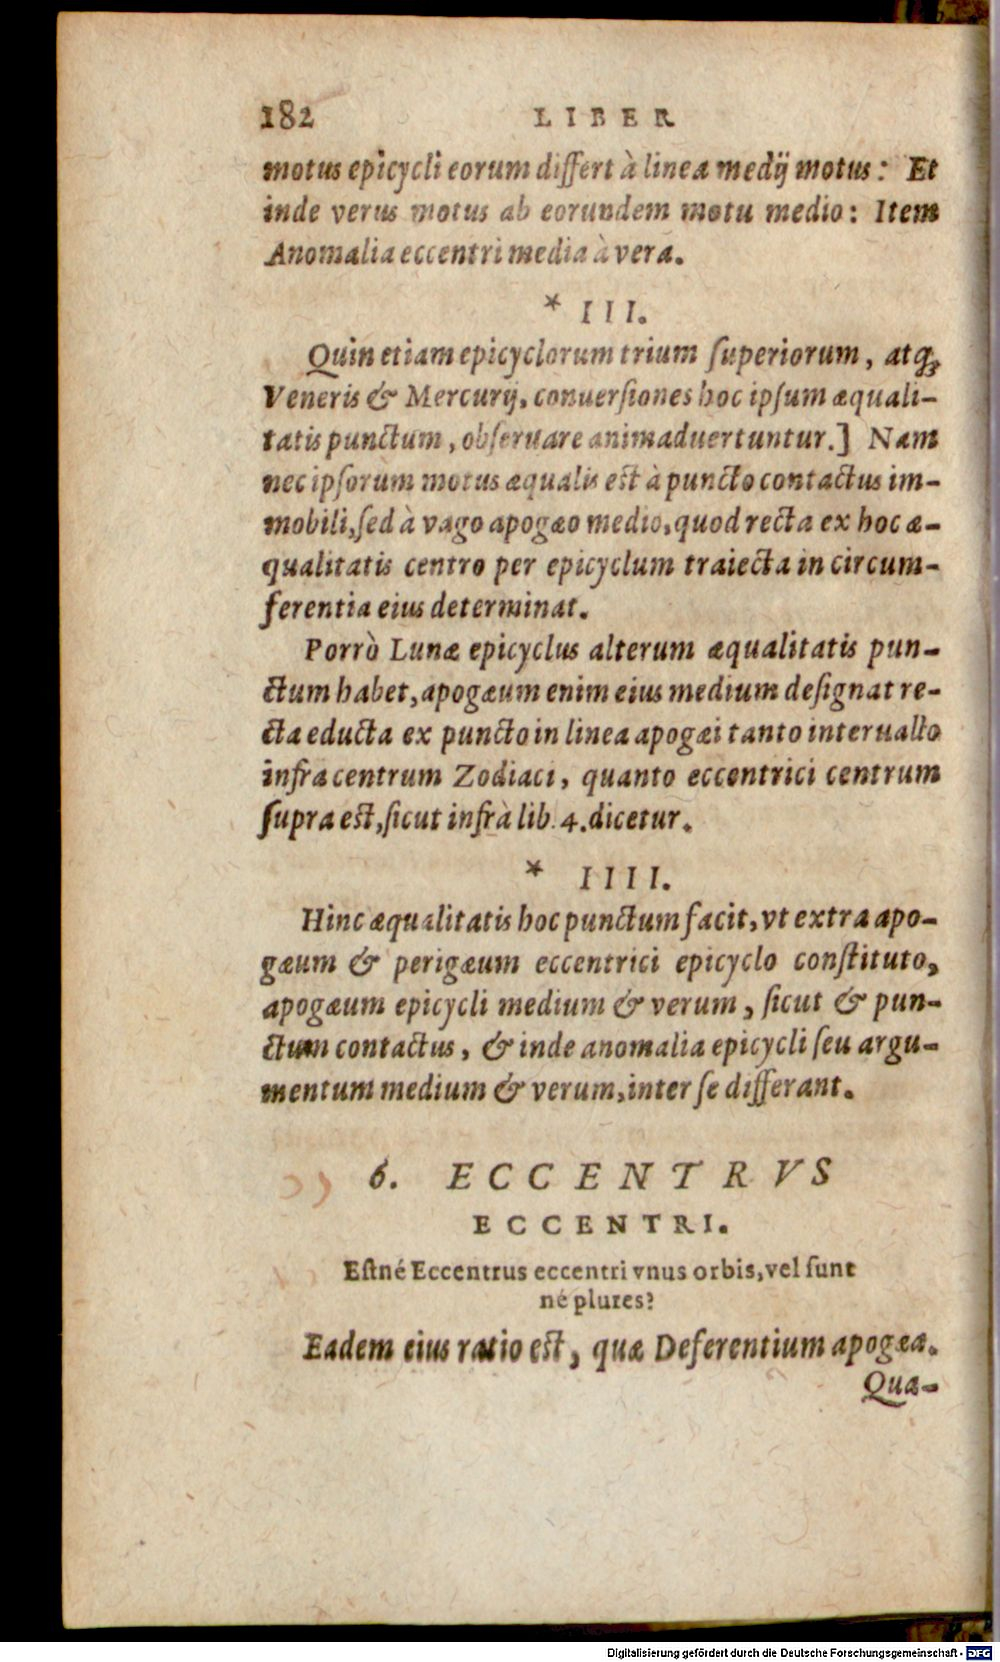 182 LIBER
motus epicycli eorum differt à linea medij motus: Et
inde verus motus ab eorundem motu medio: Item
Anomalia eccentri media à vera.
* III.
Quin etiam epicyclorum trium ſuperiorum, atqꝫ
Veneris & Mercurij, conuerſiones hoc ipſum æquali-
tatis punctum, obſeruare animaduertuntur.] Nam
nec ipſorum motus æqualis eſt à puncto contactus im-
mobili, ſed à vago apogæo medio, quod recta ex hoc æ-
qualitatis centro per epicyclum traiecta in circum-
ferentia eius determinat.
Porrò Lunæ epicyclus alterum æqualitatis pun-
ctum habet, apogæum enim eius medium deſignat re-
cta educta ex puncto in linea apogæi tanto interuallo
infra centrum Zodiaci, quanto eccentrici centrum
ſupra eſt, ſicut infrà lib. 4. dicetur.
* IIII.
Hinc æqualitatis hoc punctum facit, vt extra apo-
gæum & perigæum eccentrici epicyclo conſtituto,
apogæum epicycli medium & verum, ſicut & pun-
ctum contactus, & inde anomalia epicycli ſeu argu-
mentum medium & verum, inter ſe differant.
6. ECCENTRVS
ECCENTRI.
Eſtné Eccentrus eccentri vnus orbis, vel ſunt
né plures?
Eadem eius ratio eſt, quæ Deferentium apogæa.
Qua-
Digitalisierung gefördert durch die Deutsche Forschungsgemeinschaft - DFG